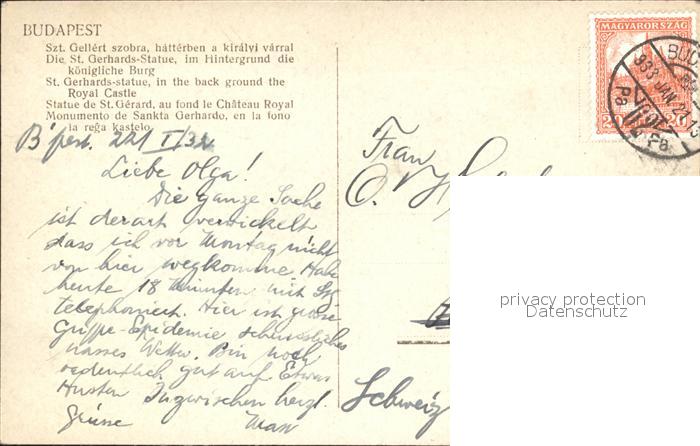 BUDAPEST
Szt. Gellért szobra, háttérben a királyi várral
Die St. Gerhards-Statue, im Hintergrund die
königliche Burg
St. Gerhards-statue, in the back ground the
Royal Castle
Statue de St. Gérard, au fond le Château Royal
Monumento de Sankta Gerhardo, en la fono
la reĝa kastelo
B'pest. 22/I/33
Liebe Olga!
Die ganze Sache
ist derart verwickelt
dass ich vor Montag nicht
von hier wegkomme. Hab
heute 18 Minuten mit
telephoniert. Hier ist grosse
Grippe-epidemie scheussliches
nasses Wetter. Bin noch
ordentlich gut auf Etwas
Husten Inzwischen herzl.
Grüsse Max
Frau
O.
Schweiz
MAGYARORSZÁG
20 20
BUDA
933 JAN 22 13
privacy protection
Datenschutz